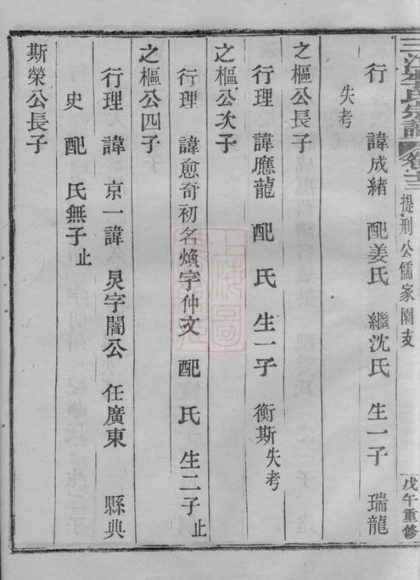 三江李氏宗譜 卷十三 提刑公儒家園支 戊午重修
行 諱成緒 配姜氏 繼沈氏 生一子 瑞龍
失考
之樞公長子
行理 諱應龍 配 氏 生一子 衡斯失考
之樞公次子
行理 諱愈奇初名煥字仲文 配 氏 生二子止
之樞公四子
行理 諱 京一諱 炅字闇公 任廣東 縣典
史 配 氏無子止
斯榮公長子